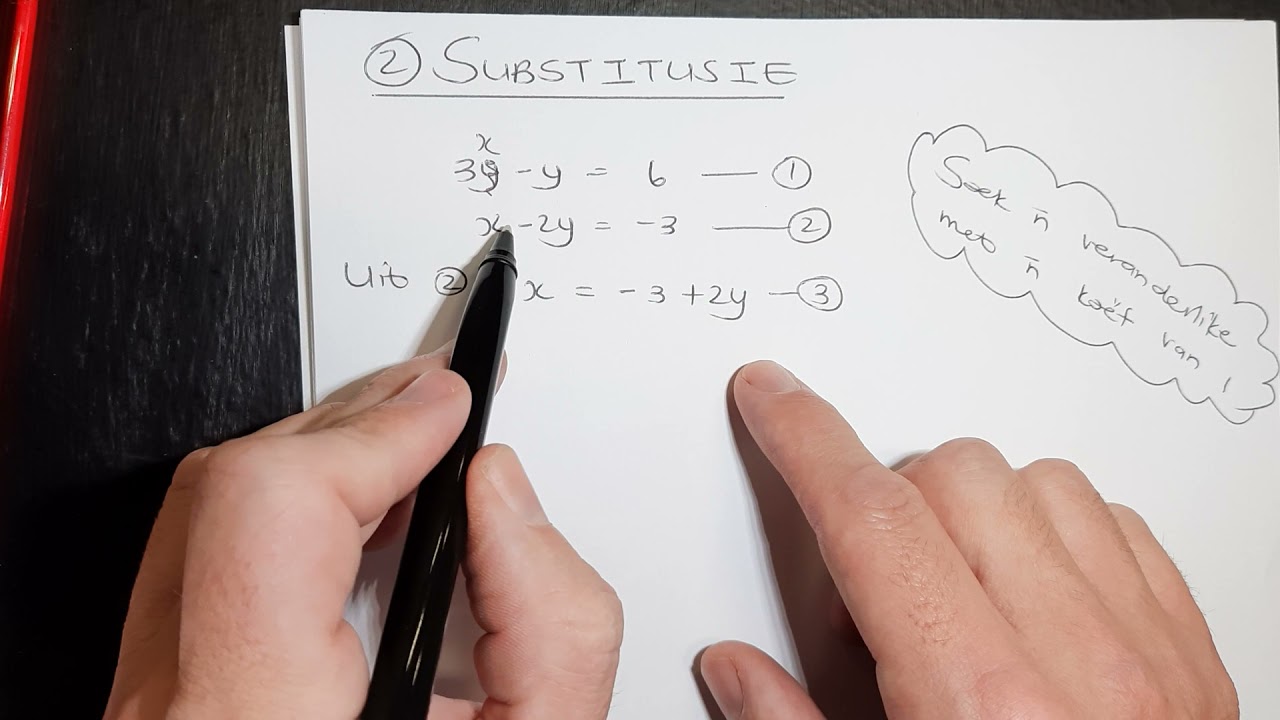 ② SUBSTITUSIE
x
3y - y = 6 — ①
x - 2y = -3 — ②
Uit ② x = -3 + 2y — ③
Soek 'n veranderlike
met 'n koëf van 1